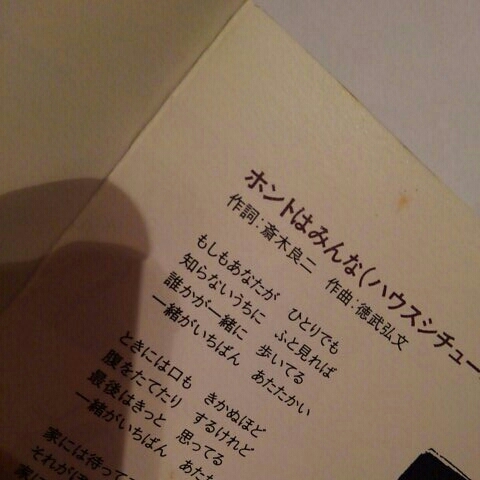 ホントはみんな(ハウスシチュー
作詞:斎木良二 作曲:徳武弘文
もしもあなたが ひとりでも
知らないうちに ふと見れば
誰かが一緒に 歩いてる
一緒がいちばん あたたかい
ときには口も きかぬほど
腹をたてたり するけれど
最後はきっと 思ってる
一緒がいちばん あたた
家には待って
それがぼ
家に